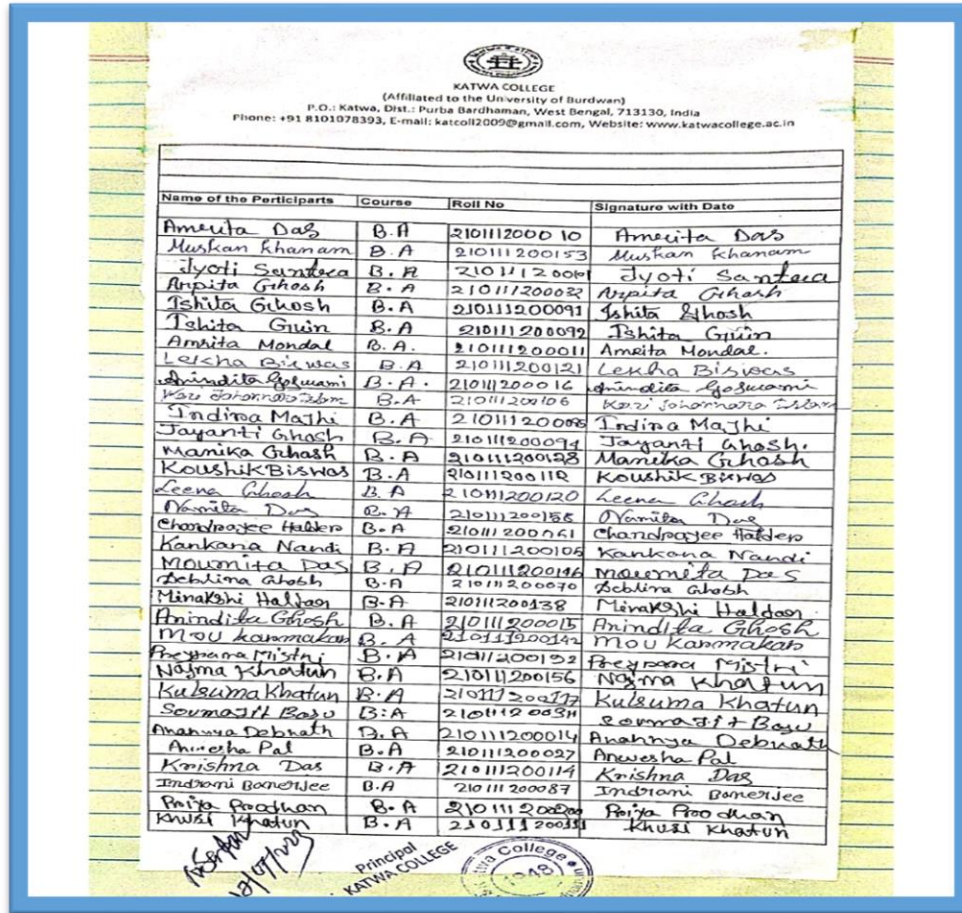 KATWA COLLEGE
(Affiliated to the University of Burdwan)
P.O.: Katwa, Dist.: Purba Bardhaman, West Bengal, 713130, India
Phone: +91 8101078393, E-mail: katcoll2009@gmail.com, Website: www.katwacollege.ac.in
Name of the Perticiparts Course Roll No Signature with Date
Amrita Das B.A 210111200010 Amrita Das
Muskan Khanam B.A 210111200153 Muskan Khanam
Jyoti Santra B.A Jyoti Santra
Arpita Ghosh B.A 210111200032 Arpita Ghosh
Ishita Ghosh B.A 210111200091 Ishita Ghosh
Ishita Guin B.A 210111200092 Ishita Guin
Amrita Mondal B.A. 210111200011 Amrita Mondal.
Lekha Biswas B.A 210111200121 Lekha Biswas
Anindita Goswami B.A. 210111200016 Anindita Goswami
B.A
Indira Majhi B.A Indira Majhi
Jayanti Ghosh B.A 210111200094 Jayanti Ghosh.
Manika Ghosh B.A 210111200128 Manika Ghosh
Koushik Biswas B.A Koushik Biswas
Leena Ghosh B.A 210111200120 Leena Ghosh
Namita Das B.A Namita Das
Chandrajee Halder B.A Chandrajee Halder
Kankana Nandi B.A Kankana Nandi
Moumita Das B.A 210111200146 Moumita Das
Deblina Ghosh B.A 210111200070 Deblina Ghosh
Minakshi Haldar B.A 210111200138 Minakshi Haldar
Anindita Ghosh B.A 210111200015 Anindita Ghosh
Mou Karmakar B.A 210111200142 Mou Karmakar
B.A Mistri
Najma Khatun B.A 210111200156 Najma Khatun
Kulsuma Khatun B.A 210111200117 Kulsuma Khatun
Soumajit Basu B:A Soumajit Basu
Ananya Debnath B.A 210111200014 Ananya Debnath
Anwesha Pal B.A 210111200027 Anwesha Pal
Krishna Das B.A 210111200114 Krishna Das
Indrani Banerjee B.A 210111200087 Indrani Banerjee
Priya Pradhan B.A Priya Pradhan
Khusi Khatun B.A Khusi Khatun
Principal
KATWA COLLEGE
Katwa College
1948